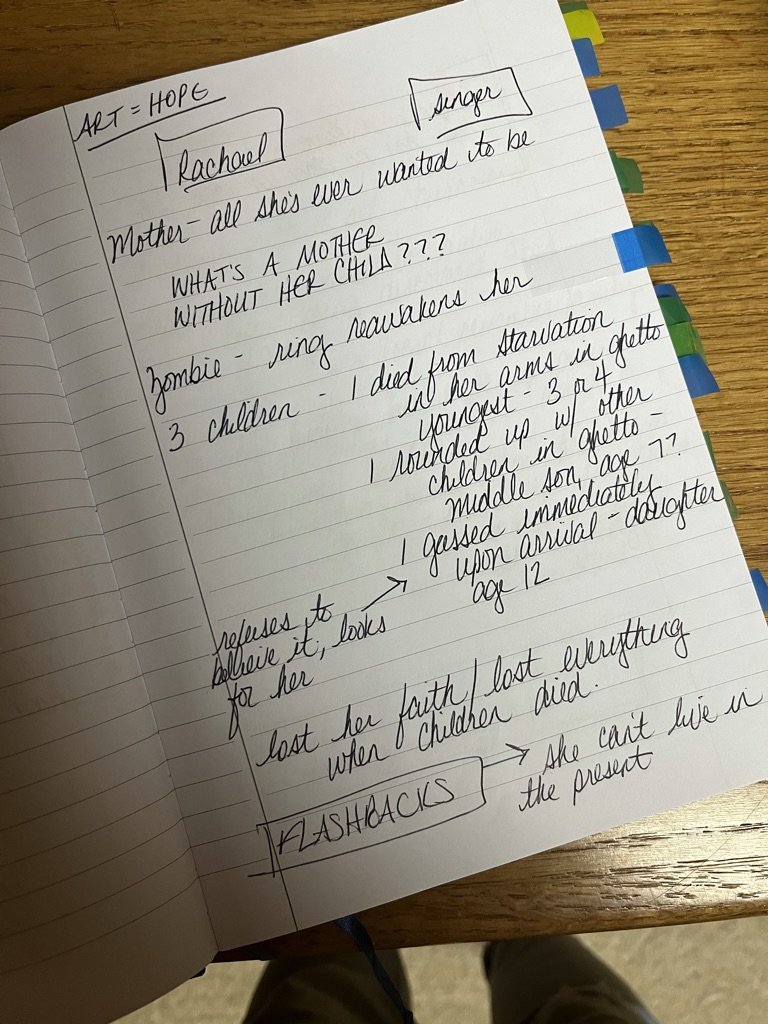 ART = HOPE
Rachael
singer
Mother - all she's ever wanted to be
WHAT'S A MOTHER
WITHOUT HER CHILD???
Zombie - ring reawakens her
3 children - 1 died from starvation
in her arms in ghetto
youngest - 3 or 4
1 rounded up w/ other
children in ghetto -
middle son, age 7?
1 gassed immediately
upon arrival - daughter
age 12
refuses to
believe it, looks
for her
lost her faith / lost everything
when children died.
FLASHBACKS → she can't live in
the present